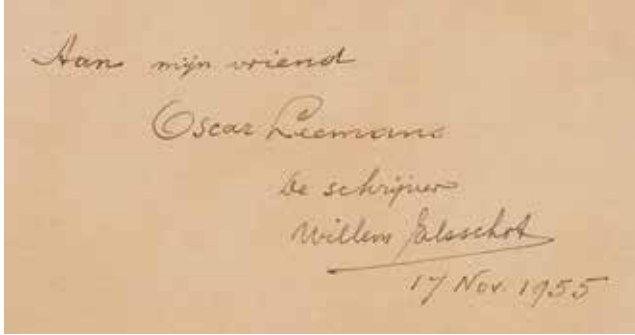 Aan mijn vriend
Oscar Leemans
de schrijver
Willem Elsschot
17 Nov. 1955